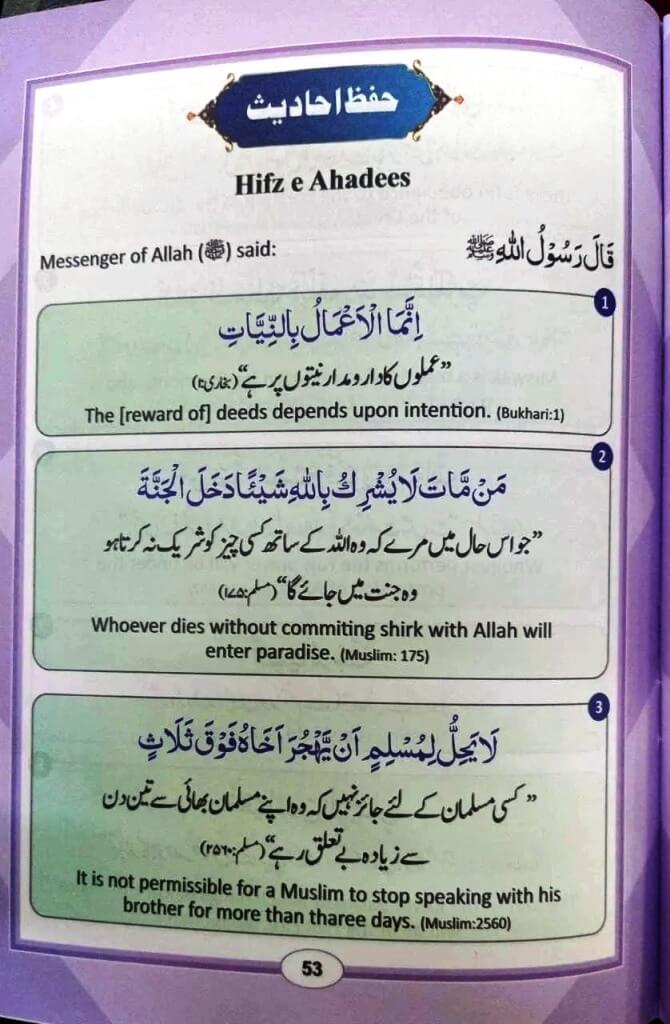 حفظ احادیث
Hifz e Ahadees
Messenger of Allah (ﷺ) said:
قَالَ رَسُوْلُ اللّٰهِ ﷺ
1
اِنَّمَا الْاَعْمَالُ بِالنِّيَّاتِ
”عملوں کا دارو مدار نیتوں پر ہے“ (بخاری:۱)
The [reward of] deeds depends upon intention. (Bukhari:1)
2
مَنْ مَّاتَ لَا يُشْرِكُ بِاللّٰهِ شَيْئًا دَخَلَ الْجَنَّةَ
”جو اس حال میں مرے کہ وہ اللہ کے ساتھ کسی چیز کو شریک نہ کرتا ہو
وہ جنت میں جائے گا“ (مسلم:۱۷۵)
Whoever dies without commiting shirk with Allah will
enter paradise. (Muslim: 175)
3
لَا يَحِلُّ لِمُسْلِمٍ اَنْ يَّهْجُرَ اَخَاهُ فَوْقَ ثَلَاثٍ
”کسی مسلمان کے لئے جائز نہیں کہ وہ اپنے مسلمان بھائی سے تین دن
سے زیادہ بے تعلق رہے“ (مسلم:۲۵۶۰)
It is not permissible for a Muslim to stop speaking with his
brother for more than tharee days. (Muslim:2560)
53